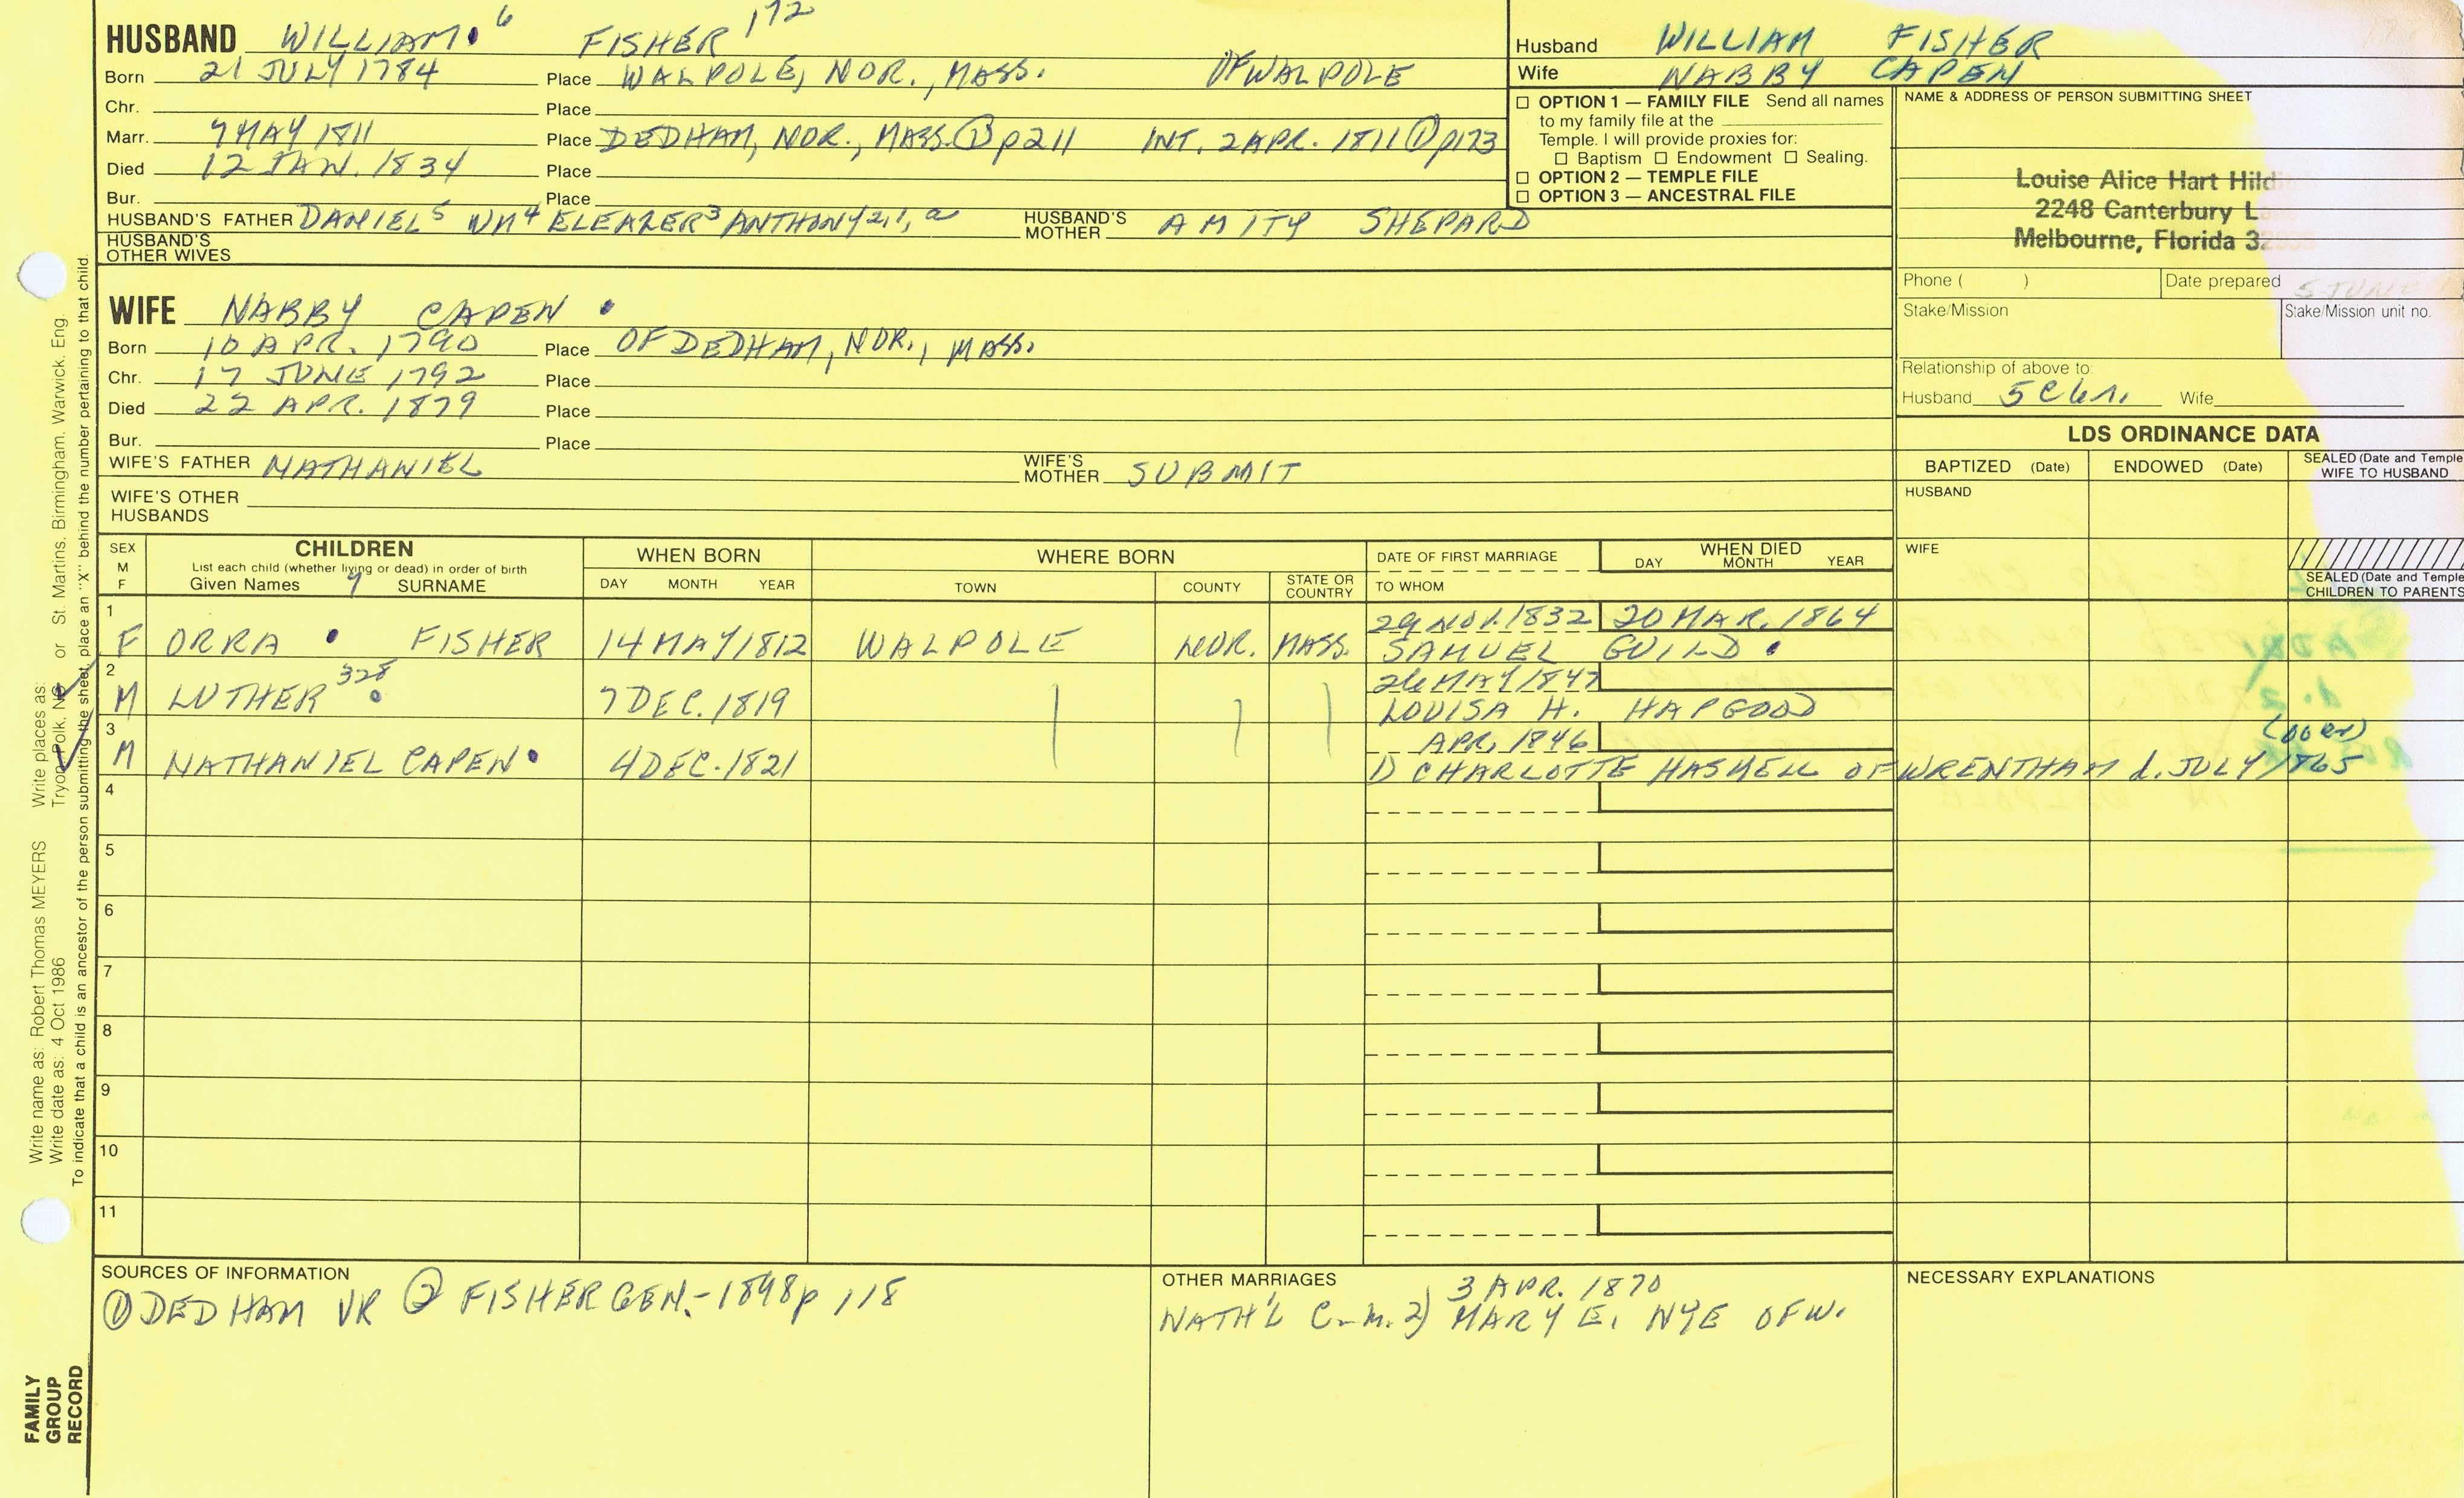 HUSBAND WILLIAM 6 FISHER 172
Born 21 JULY 1784 Place WALPOLE, NOR., MASS. OF WALPOLE
Chr. Place
Marr. 7 MAY 1811 Place DEDHAM, NOR., MASS. ① p 211 INT. 2 APR. 1811 ① p173
Died 12 JAN. 1834 Place
Bur. Place
HUSBAND'S FATHER DANIEL5 WM4 ELEAZER3 ANTHONY2,1, a HUSBAND'S MOTHER AMITY SHEPARD
HUSBAND'S OTHER WIVES
Husband WILLIAM FISHER
Wife NABBY CAPEN
☐ OPTION 1 — FAMILY FILE Send all names
to my family file at the
Temple. I will provide proxies for:
☐ Baptism ☐ Endowment ☐ Sealing.
☐ OPTION 2 — TEMPLE FILE
☐ OPTION 3 — ANCESTRAL FILE
NAME & ADDRESS OF PERSON SUBMITTING SHEET
Louise Alice Hart
2248 Canterbury
Melbourne, Florida
Phone ( ) Date prepared 5 JUNE
Stake/Mission Stake/Mission unit no.
Relationship of above to:
Husband 5 C 6 r. Wife
WIFE NABBY CAPEN
Born 10 APR. 1790 Place OF DEDHAM, NOR., MASS.
Chr. 17 JUNE 1792 Place
Died 22 APR. 1879 Place
Bur. Place
WIFE'S FATHER NATHANIEL WIFE'S MOTHER SUBMIT
WIFE'S OTHER HUSBANDS
LDS ORDINANCE DATA
BAPTIZED (Date) ENDOWED (Date) SEALED (Date and Temple WIFE TO HUSBAND
HUSBAND
WIFE
SEALED (Date and Temple CHILDREN TO PARENTS
SEX M F
CHILDREN
List each child (whether living or dead) in order of birth
Given Names SURNAME
WHEN BORN
DAY MONTH YEAR
WHERE BORN
TOWN COUNTY STATE OR COUNTRY
DATE OF FIRST MARRIAGE
TO WHOM
WHEN DIED
DAY MONTH YEAR
1 F ORRA FISHER 14 MAY 1812 WALPOLE NOR. MASS. 29 NOV. 1832 20 MAR. 1864
SAMUEL GUILD
2 M LUTHER 328 7 DEC. 1819 26 MAY 1847
LOUISA H. HAPGOOD
3 M NATHANIEL CAPEN 4 DEC. 1821 APR. 1846 (over)
1) CHARLOTTE HASKELL OF WRENTHAM d. JULY 1865
4
5
6
7
8
9
10
11
SOURCES OF INFORMATION
① DEDHAM VR ② FISHER GEN.-1898 p 118
OTHER MARRIAGES
3 APR. 1870
NATH'L C. m. 2) MARY E. NYE OF W.
NECESSARY EXPLANATIONS
Write name as: Robert Thomas MEYERS Write places as: Tryon, Polk, NC or St. Martins, Birmingham, Warwick, Eng.
Write date as: 4 Oct 1986
To indicate that a child is an ancestor of the person submitting the sheet, place an "X" behind the number pertaining to that child.
FAMILY
GROUP
RECORD